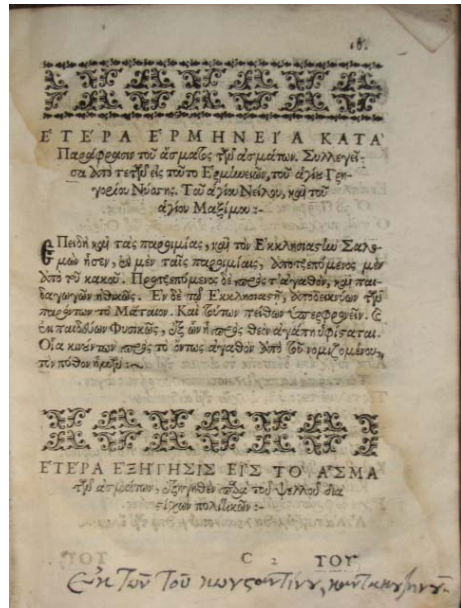 ΕΤΕΡΑ ΕΡΜΗΝΕΙΑ ΚΑΤΑ
Παράφρασιν τοῦ ἄσματος τῶν ἀσμάτων. Συλλεγεῖ-
σα ἀπὸ τε τῶν εἰς τοῦτο Ερμηνειῶν, τοῦ ἁγίου Γρη-
γορίου Νύσης. Τοῦ ἁγίου Νείλου, καὶ τοῦ
ἁγίου Μαξίμου :-
ΕΠειδὴ καὶ τὰς παροιμίας, καὶ τὸν Εκκλησιαστὴν Σαλο-
μὼν ἦσεν, ἐν μὲν ταῖς παροιμίαις, ἀποτρεπόμενος μὲν
ἀπὸ τοῦ κακοῦ. Προτρεπόμενος δὲ πρὸς τ'ἀγαθὸν, καὶ παι-
δαγωγῶν ἠθικῶς. Εν δὲ τῷ Εκκλησιαστῇ, ἀποδεικνύων τῶν
παρόντων τὸ Μάταιον. Καὶ τούτων πείθων ὑπερφρονεῖν.
Εκπαιδεύων Φυσικῶς, ἐξ ὧν ἡ πρὸς θεὸν ἀγάπη ὑφίσταται.
Οἷα κινούντων πρὸς τὸ ὄντως ἀγαθὸν ἀπὸ τοῦ νομιζομένου,
τὸν πόθον ἡμῶν :-
ΕΤΕΡΑ ΕΞΗΓΗΣΙΣ ΕΙΣ ΤΟ ΑΣΜΑ
τῶν ἀσμάτων, ἐξηγηθὲν παρὰ τοῦ ψελλοῦ δια
στίχων πολιτικῶν :-
C 2 ΤΟΥ
Ἐκ τῶν τοῦ κωνσταντίνου καντακουζηνοῦ.